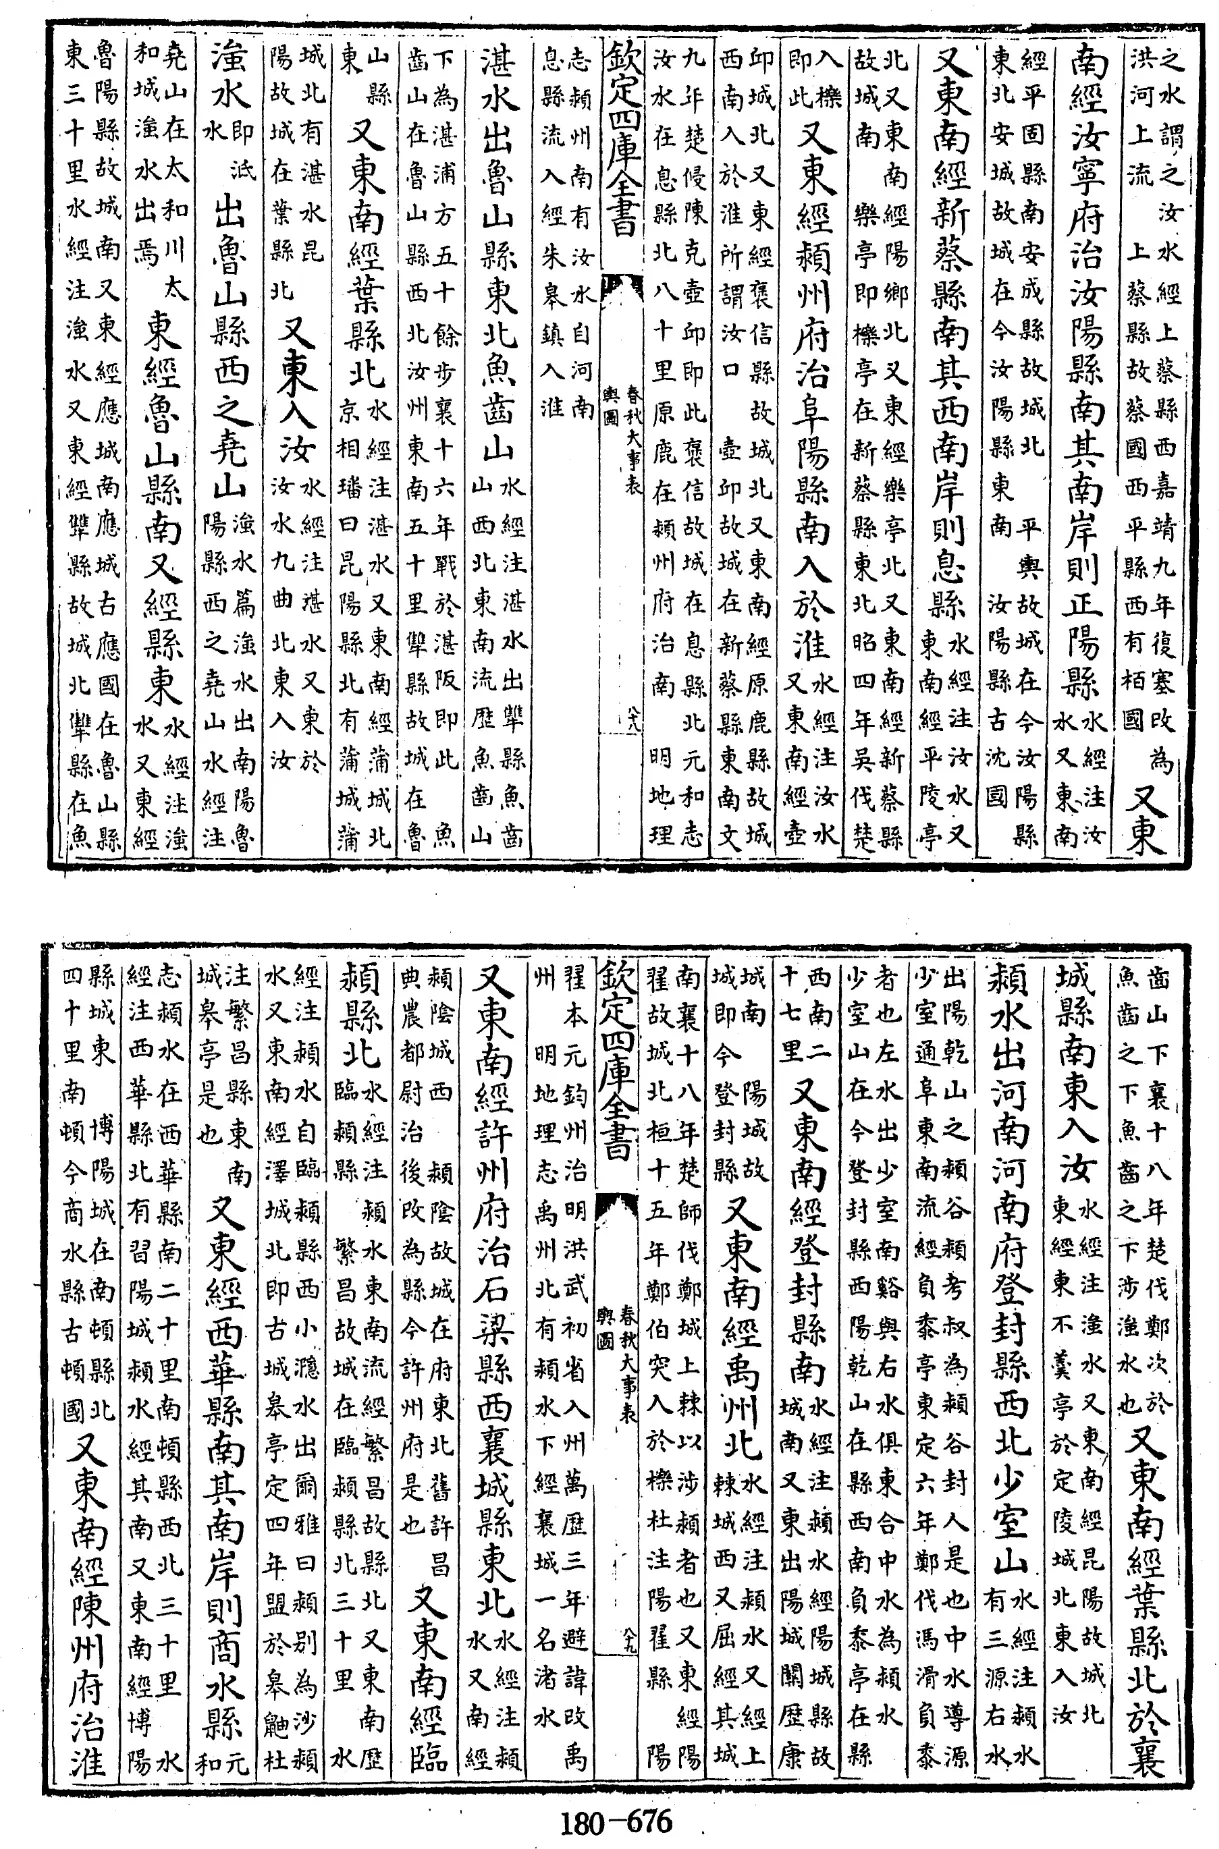 之水謂之汝水經上蔡縣西嘉靖九年復塞改為洪河上流 上蔡縣故蔡國西平縣西有栢國又東
南經汝寧府治汝陽縣南其南岸則正陽縣水經注汝水又東南
經平固縣南安成縣故城北 平輿故城在今汝陽縣東北安城故城在今汝陽縣東南 汝陽縣古沈國
又東南經新蔡縣南其西南岸則息縣水經注汝水又東南經平陵亭
北又東南經陽鄉北又東經樂亭北又東南經新蔡縣故城南 樂亭即櫟亭在新蔡縣東北昭四年吳伐楚
入櫟即此又東經潁州府治阜陽縣南入於淮水經注汝水又東南經壺
邱城北又東經褒信縣故城北又東南經原鹿縣故城西南入於淮所謂汝口 壺邱故城在新蔡縣東南文
九年楚侵陳克壺邱即此褒信故城在息縣北元和志汝水在息縣北八十里原鹿在潁州府治南 明地理
欽定四庫全書 春秋大事表 輿圖 八八
志潁州南有汝水自河南息縣流入經朱皋鎮入淮
湛水出魯山縣東北魚齒山水經注湛水出犨縣魚齒山西北東南流歷魚齒山
下為湛浦方五十餘步襄十六年戰於湛阪即此 魚齒山在魯山縣西北汝州東南五十里犨縣故城在魯
山縣東又東南經葉縣北水經注湛水又東南經蒲城北京相璠曰昆陽縣北有蒲城蒲
城北有湛水昆陽故城在葉縣北又東入汝水經注湛水又東於汝水九曲北東入汝
滍水即泜水出魯山縣西之堯山滍水篇滍水出南陽魯陽縣西之堯山水經注
堯山在太和川太和城滍水出焉東經魯山縣南又經縣東水經注滍水又東經
魯陽縣故城南又東經應城南應城古應國在魯山縣東三十里水經注滍水又東經犨縣故城北犨縣在魚
齒山下襄十八年楚伐鄭次於魚齒之下魚齒之下涉滍水也又東南經葉縣北於襄
城縣南東入汝水經注滍水又東南經昆陽故城北東經東不羹亭於定陵城北東入汝
潁水出河南河南府登封縣西北少室山水經注潁水有三源右水
出陽乾山之潁谷潁考叔為潁谷封人是也中水導源少室通阜東南流經負黍亭東定六年鄭伐馮滑負黍
者也左水出少室南谿與右水俱東合中水為潁水少室山在今登封縣西陽乾山在縣西南負黍亭在縣
西南二十七里又東南經登封縣南水經注潁水經陽城縣故城南又東出陽城關歷康
城南 陽城故城即今登封縣又東南經禹州北水經注潁水又經上棘城西又屈經其城
南襄十八年楚師伐鄭城上棘以涉潁者也又東經陽翟故城北桓十五年鄭伯突入於櫟杜注陽翟縣 陽
欽定四庫全書 春秋大事表 輿圖 八九
翟本元鈞州治明洪武初省入州萬歷三年避諱改禹州 明地理志禹州北有潁水下經襄城一名渚水
又東南經許州府治石梁縣西襄城縣東北水經注潁水又南經
潁陰城西 潁陰故城在府東北舊許昌典農都尉治後改為縣今許州府是也又東南經臨
潁縣北水經注潁水東南流經繁昌故縣北又東南歷臨潁縣 繁昌故城在臨潁縣北三十里 水
經注潁水自臨潁縣西小㶏水出爾雅曰潁別為沙潁水又東南經澤城北即古城皋亭定四年盟於皋鼬杜
注繁昌縣東南城皋亭是也又東經西華縣南其南岸則商水縣元和
志潁水在西華縣南二十里南頓縣西北三十里 水經注西華縣北有習陽城潁水經其南又東南經博陽
縣城東 博陽城在南頓縣北四十里南頓今商水縣古頓國又東南經陳州府治淮
180-676